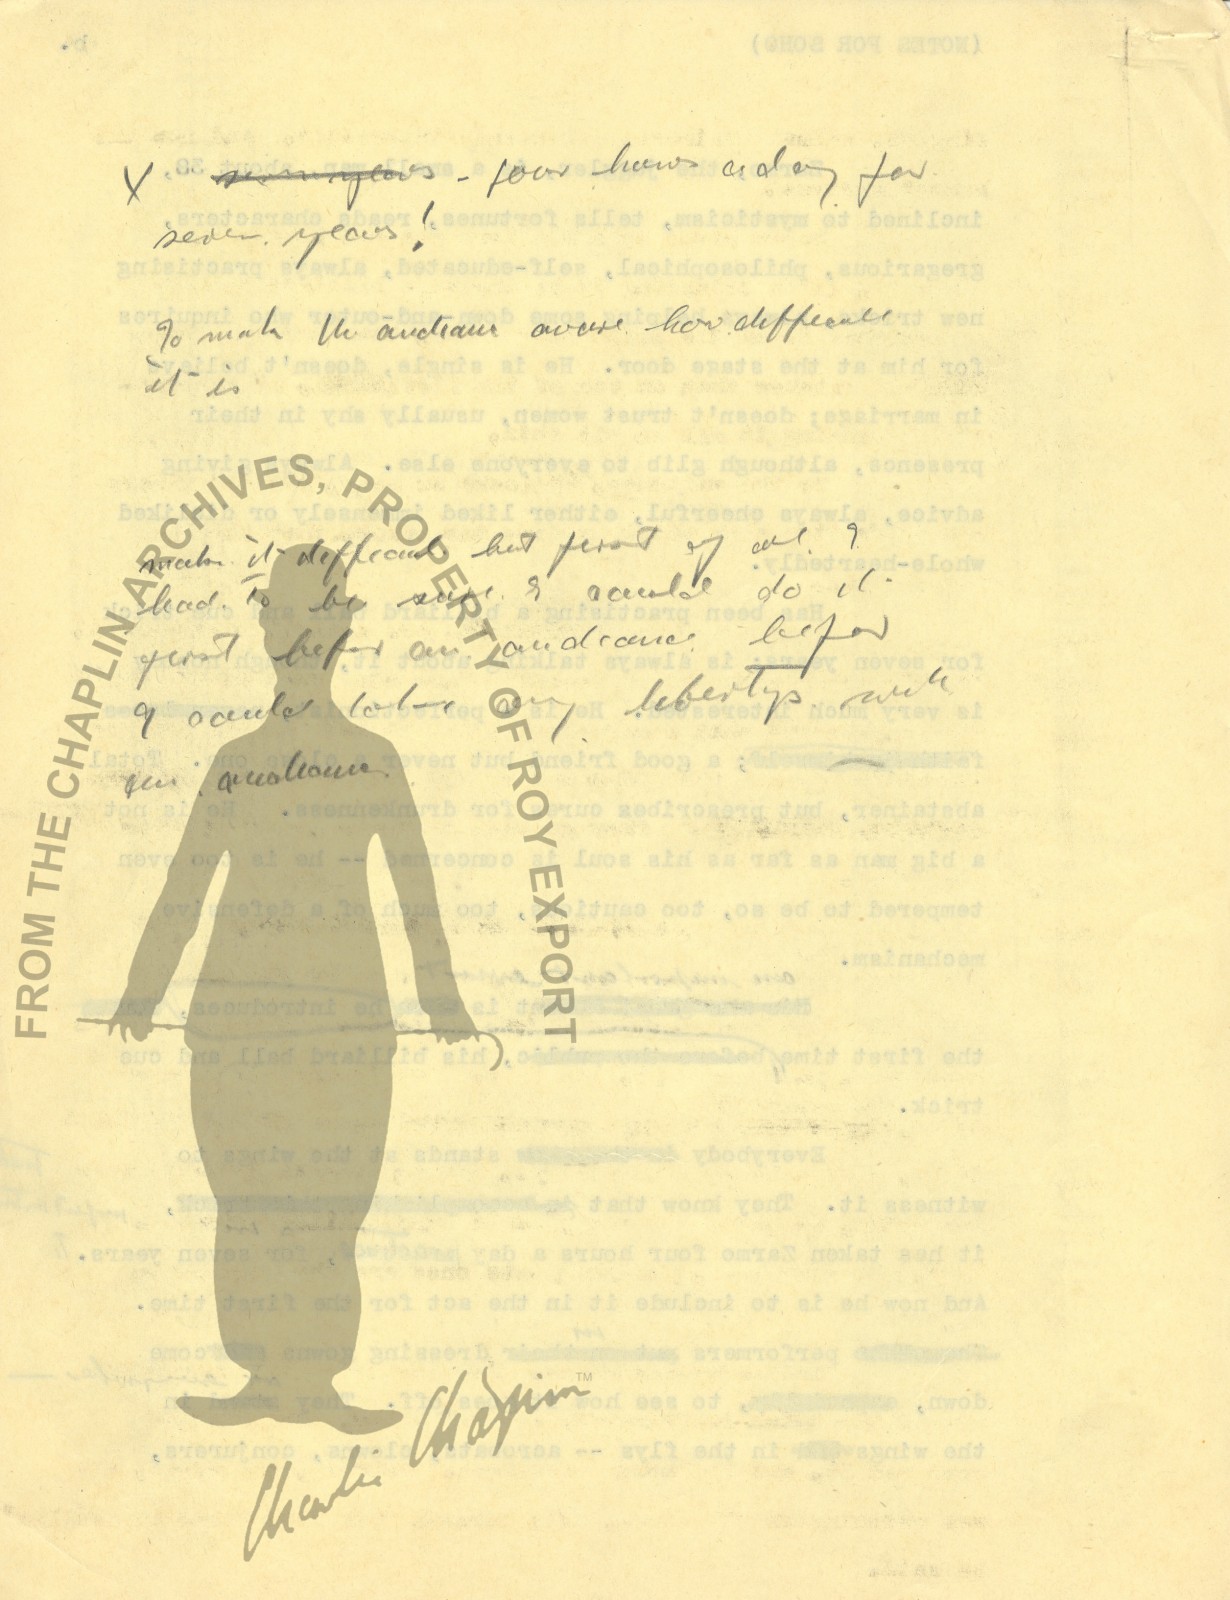 X ~~seven years~~ - four hours a day for
seven years!
To make the audience aware how difficult
it is
make it difficult but first of all I
had to be sure I could do it
first befor an audience befor
I could take any libertys with
an audience.
FROM THE CHAPLIN ARCHIVES, PROPERTY OF ROY EXPORT
Charlie Chaplin™
(NOTES FOR SONG) b.
a small man, about 30,
inclined to mysticism, tells fortunes, reads characters,
gregarious, philosophical, self-educated, always practising
new helping some down-and-outer who inquires
for him at the stage door. He is single, doesn't believe
in marriage; doesn't trust women, usually shy in their
presence, although glib to everyone else. Always giving
advice, always cheerful, either liked intensely or disliked
whole-heartedly.
Has been practising a billiard ball and cue trick
for seven years; is always talking about it, though nobody
is very much interested. He is a perfectionist
a good friend but never a close one. Total
abstainer, but prescribes cures for drunkenness. He is not
a big man as far as his soul is concerned -- he is too even
tempered to be so, too cautious, too much of a defensive
mechanism.
an important event
is when he introduces,
the first time before the public, his billiard ball and cue
trick.
Everybody stands at the wings to
witness it. They know that
it has taken Zarmo four hours a day for seven years.
And now he is to include it in the act for the first time.
performers in their dressing gowns come
down, to see how off. They stand in
the wings and in the flys -- acrobats, clowns, conjurers,